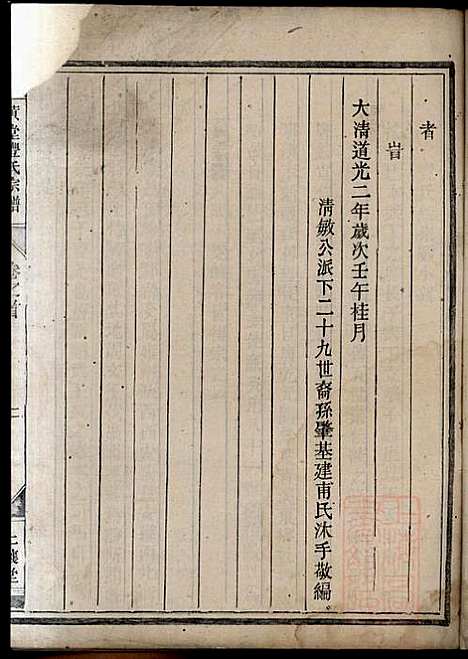 者
旹
大清道光二年歲次壬午桂月
清敏公派下二十九世裔孫肇基建甫氏沐手敬編
黃堂豐氏宗譜
卷之首
一